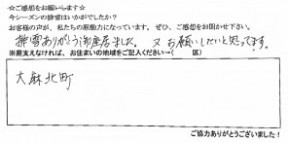 ☆ご感想をお願いします☆
今シーズンの除雪はいかがでしたか?
お客様の声が、私たちの原動力になっています。ぜひ、ご感想をお聞かせ下さい。
除雪ありがとう御座居ました。 又お願いしたいと思ってます。
※差支えなければ、お住まいの地域をご記入ください→( 区)
大麻北町
ご協力ありがとうございました!